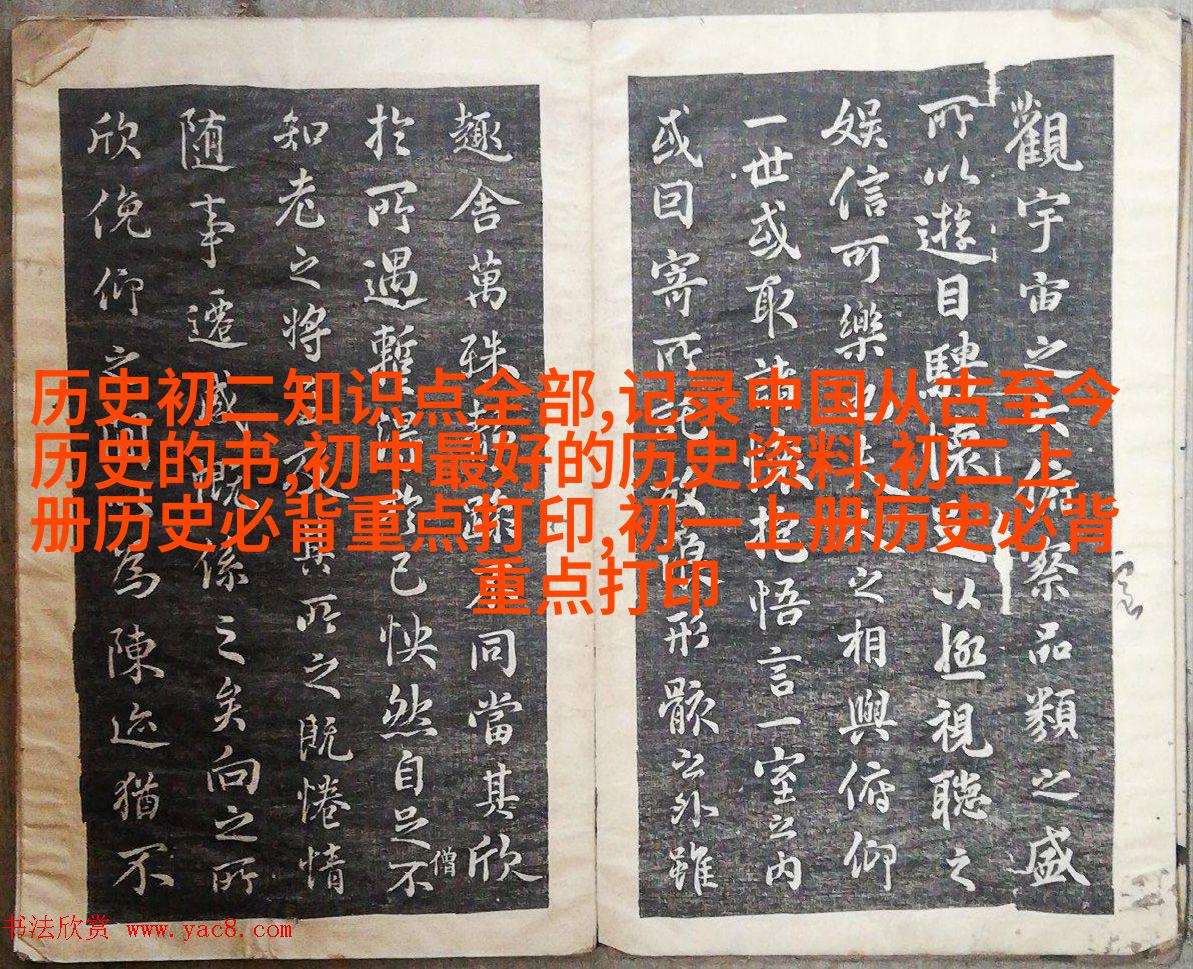 觀宇宙之大俯察品類之盛
所以遊目騁懷足以極視聽之
娛信可樂也夫人之相與俯仰
一世或取諸懷抱悟言一室之內
或因寄所託放浪形骸之外雖
趣舍萬殊靜躁不同當其欣
於所遇暫得於己怏然自足不
僧
知老之將至及其所之既惓情
随事遷感慨係之矣向之所
欣俛仰之間以為陳迹猶不
历史初二知识点全部,记录中国从古至今
历史的书,初中最好的历史资料,初二上
册历史必背重点打印,初一上册历史必背
重点打印
书法欣赏 www.yac8.com